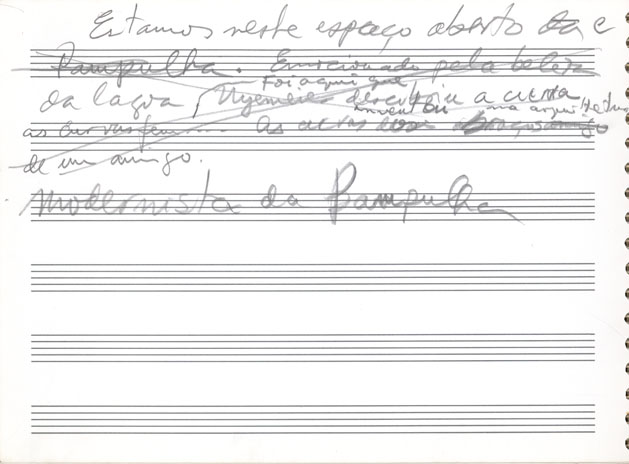 Estamos neste espaço aberto da e
Pampulha. Emocionado pela beleza
Foi aqui que
da lagoa, Nyemeier descobriu a curva
inventou na arquitetura
as curvas As curvas dos abraços amigo
de um amigo.
Modernista da Pampulha